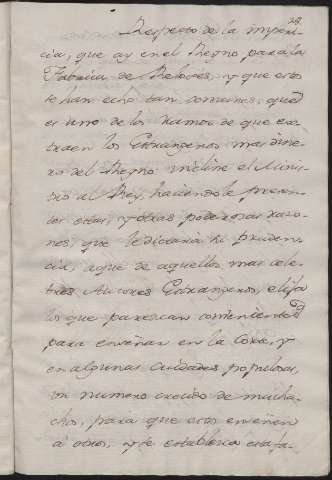 28.
Respecto de la imperi-
cia, que ay en el Reyno para la
Fabrica de Reloxes, y que estos
se han echo tan comunes, que
es uno de los ramos de que ex-
traen los Extrangeros mas dine-
ro del Reyno: incline el Minis-
tro al Rey, haciendole presen-
tes estas, y otras poderosas razo-
nes, que le dictará su pruden-
cia, a que de aquellos mas cele-
bres Autores Extrangeros, elija
los que parescan convenientes
para enseñar en la Corte, y
en algunas Ciudades populosas,
un numero crecido de mucha-
chos, para que estos enseñen
á otros, y se establezca esta fa-